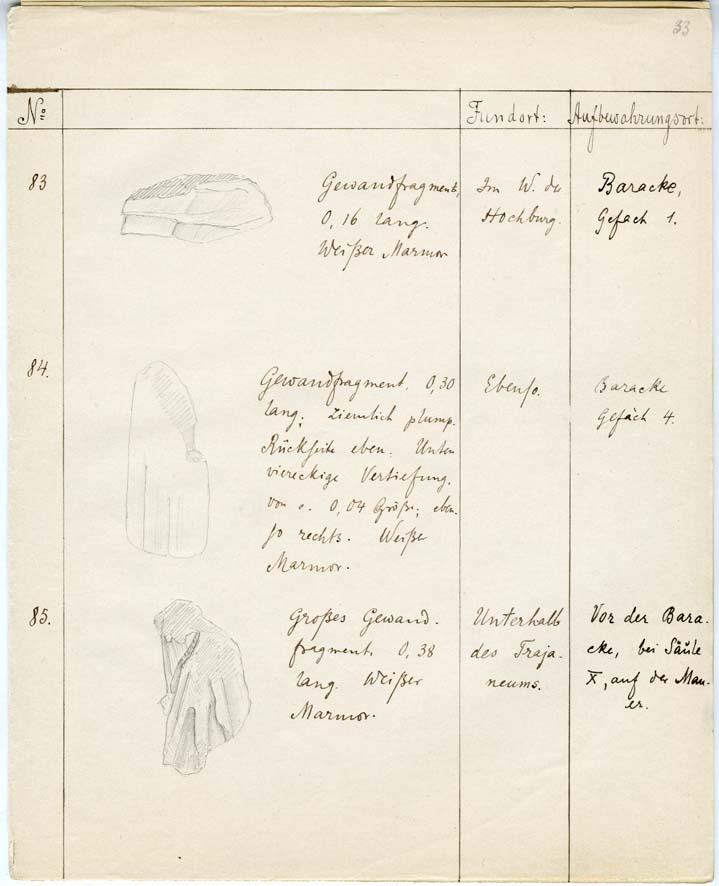 33
No Fundort: Aufbewahrungsort:
83
Gewandfragment,
0,16 lang.
Weißer Marmor
Im W. der
Hochburg.
Baracke,
Gefach 1.
84.
Gewandfragment. 0,30
lang; ziemlich plump.
Rückseite eben. Unten
viereckige Vertiefung.
von c. 0,04 Größe; eben-
so rechts. Weißer
Marmor.
Ebenso.
Baracke
Gefach 4.
85.
Großes Gewand-
fragment. 0,38
lang. Weißer
Marmor.
Unterhalb
des Traja-
neums.
Vor der Bara-
cke, bei Säule
X, auf der Mau-
er.